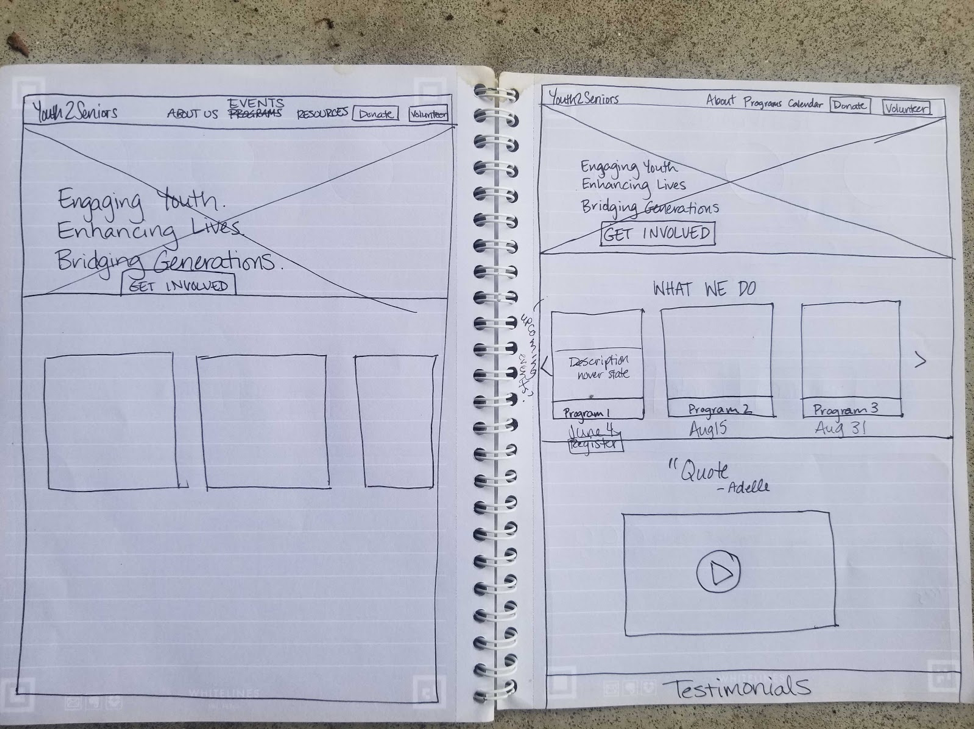 Youth2Seniors ABOUT US EVENTS PROGRAMS RESOURCES Donate Volunteer
Engaging Youth.
Enhancing Lives.
Bridging Generations.
GET INVOLVED
WHITELINES
Youth2Seniors About Programs Calendar Donate Volunteer
Engaging Youth
Enhancing Lives
Bridging Generations
GET INVOLVED
WHAT WE DO
UPCOMING EVENTS?
< >
Description
hover state
Program 1 Program 2 Program 3
June 4 Aug 15 Aug 31
Register
"Quote
- Adelle
Testimonials